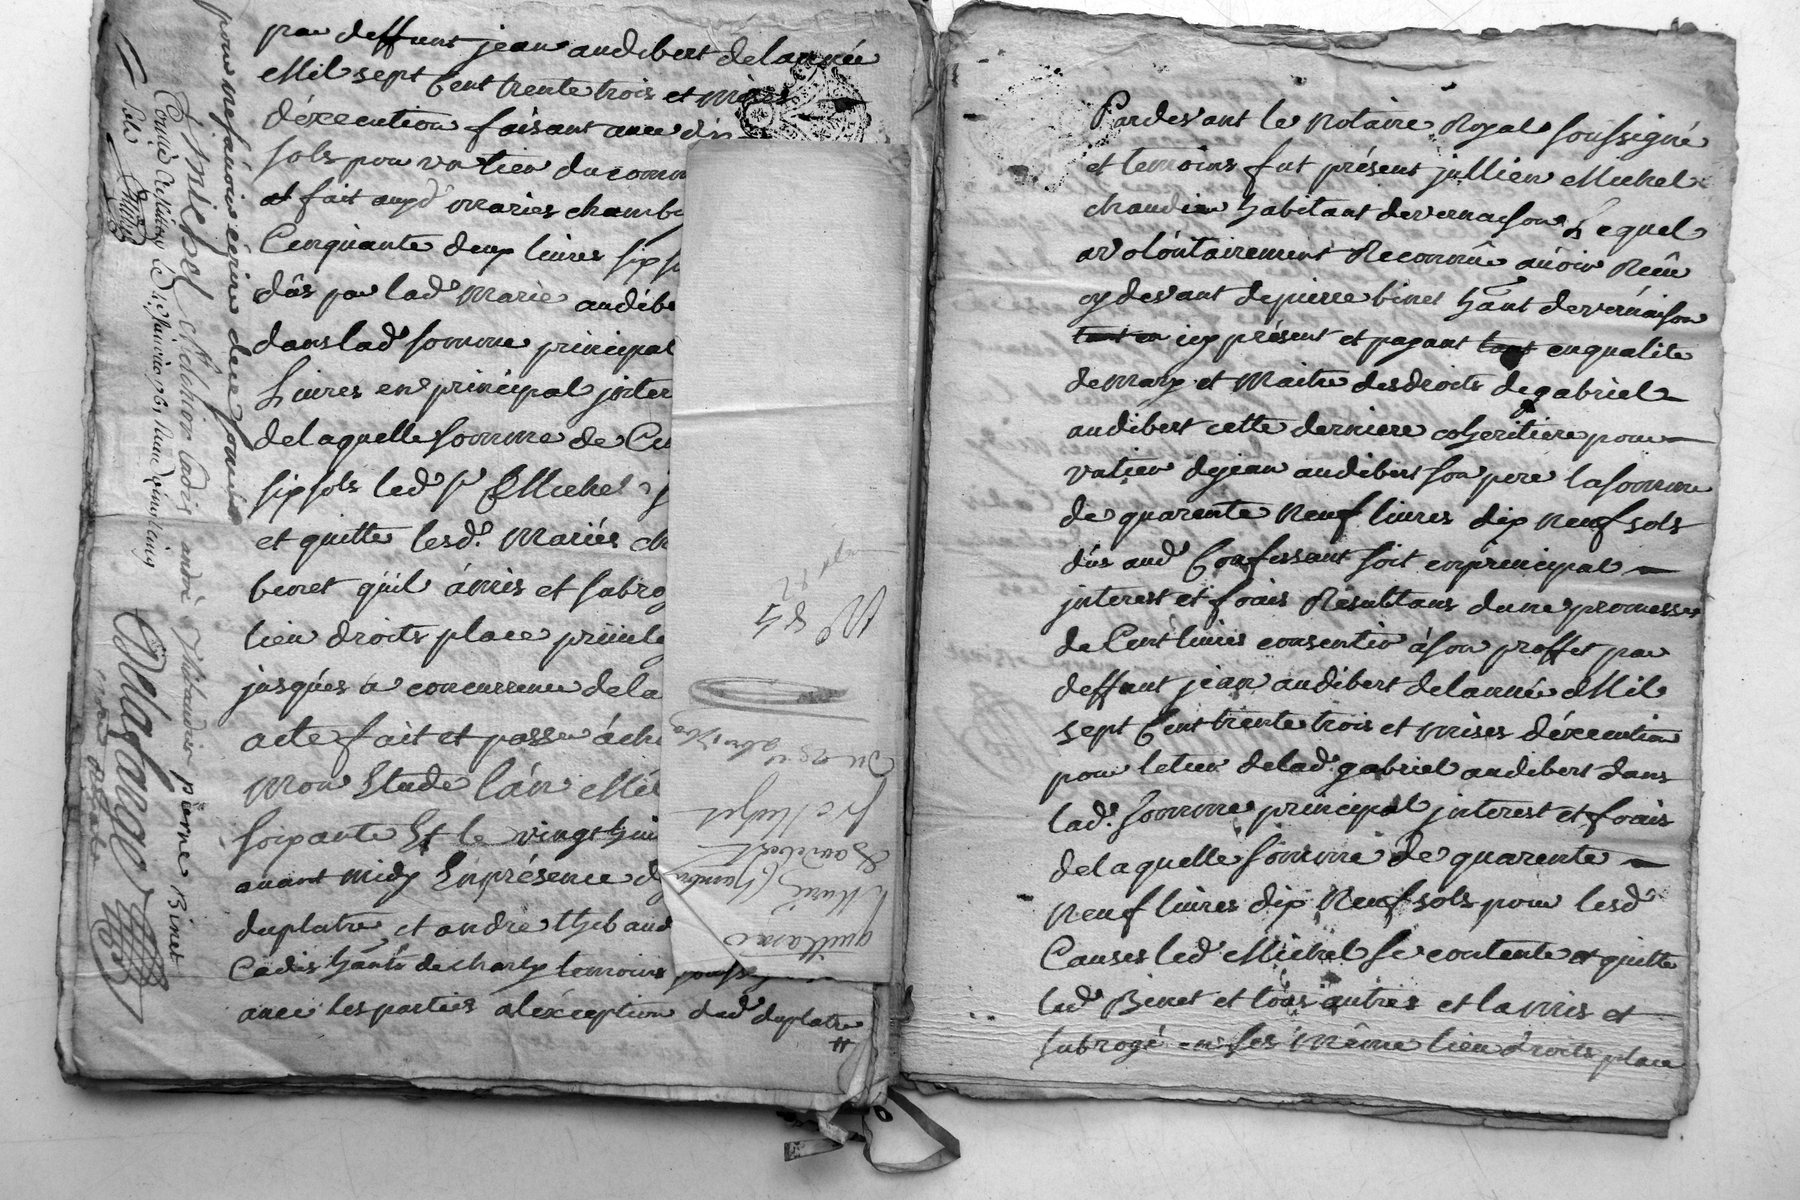 par deffunt jean audibert de lannée
Mil sept Cent trente trois et mises
déxecution faisant avec dix
sols pour
et fait auxd maries chamb
Cinquante deux livres six s
dûs par lad Marie audibe
dans lad somme principal
Livres en principal jnter
de laquelle somme de Ci
six sols led Sr Michel
et quitte lesd. Mariés ch
quil á mis et subrog
lieu droits place privile
jusques a concurrence de la
acte fait et passé á cha
Mon Etude lán Mil
soixante Et le vingt huit
avant midy En présence d
duplatre et andré thibaud
Cadis hants de charly temoins souss
avec les parties a lexception dud duplatre
pour ne scávoir écrire de ce
Michel
Melchior Cadis andré Thibaudier pierre Binet
Delafarge
No Royale
No 85
Du 28 xbre 1760
Sr Michel
&audibert
a Marié Chambe
quittance
Pardevant le Notaire Royal soussigné
et temoins fut présent jullien Michel
habitant de vernaison Lequel
a volóntairement Reconnû auóir Reçu
cy devant de pierre binet hant de vernaison
icy présent et payant en qualite
de mary et Maitre des droits de gabriel
audibert cette derniere coheritiere pour
de jean audibert son pere la somme
de quarente Neuf livres dix Neuf sols
dûs aud Confessant soit en principal
jnterest et frais Résultans dune promesse
de Cent livres consentie á son proffet par
deffunt jean audibert de lannée Mil
sept Cent trente trois et mises déxecution
pour de lad. gabriel audibert dans
lad. somme principal jnterest et frais
de laquelle somme de quarente
Neuf livres dix Neuf sols pour lesd
Causes led Michel se contente et quitte
led Binet et tous autres et la mis et
subrogé en ses Même lieu droits place